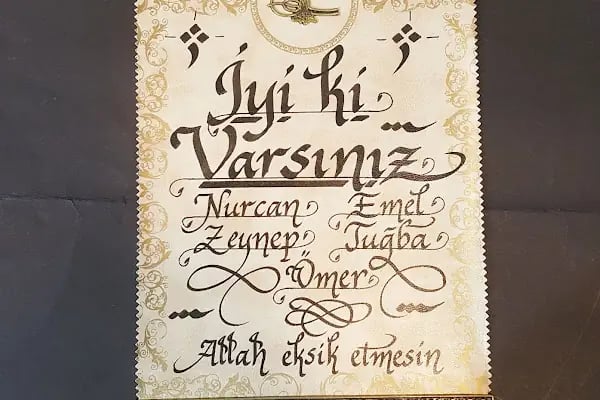 İyi ki
Varsınız
Nurcan Emel
Zeynep Tuğba
Ömer
Allah eksik etmesin